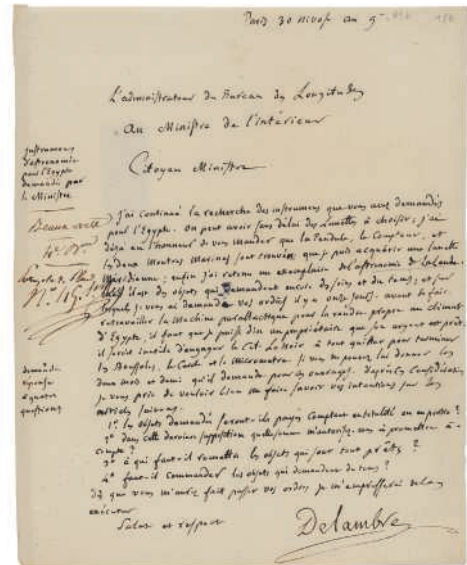 Paris 30 nivose an 9
L'administrateur du Bureau des Longitudes
au Ministre de l'intérieur
Citoyen Ministre
instrumens
d'astronomie
pour l'Egypte
demandés par
le Ministre
J'ai continué la recherche des instrumens que vous avez demandés
pour l'Egypte. On peut avoir sans délai des lunettes à choisir; j'ai
déja eu l'honneur de vous mander que la Pendule, le Compteur, et
les deux Montres Marines sont trouvés, que je puis acquérir une lunette
Méridienne; enfin j'ai retenu un exemplaire de l'astronomie de la Lande.
il est des objets qui demandent encore des soins et du tems; et sur
lesquels je vous ai demandé vos ordres il y a onze jours. avant de faire
retravailler la Machine parallactique pour la rendre propre au climat
d'Egypte, il faut que je puisse dire au propriétaire que son argent est prêt;
il seroit inutile d'engager le Cit. Le Noir à tout quitter pour terminer
les Boussoles, le Cercle et le micrometre si vous ne pouvez lui donner les
deux mois et demi qu'il demande pour ces ouvrages. d'après ces Considérations
je vous prie de vouloir bien me faire savoir vos intentions sur les
articles suivans.
demande
réponse
à quatre
questions
1° les objets demandés seront-ils payés Comptant en totalité ou en partie?
2° dans cette derniere supposition quelle somme m'autorisez-vous à promettre à-
compte?
3° à qui faut-il remettre les objets qui sont tout prêts?
4° faut-il Commander les objets qui demandent du tems?
dès que vous m'aurez fait passer vos ordres je m'empresserai de les
exécuter
Salut et respect
Delambre